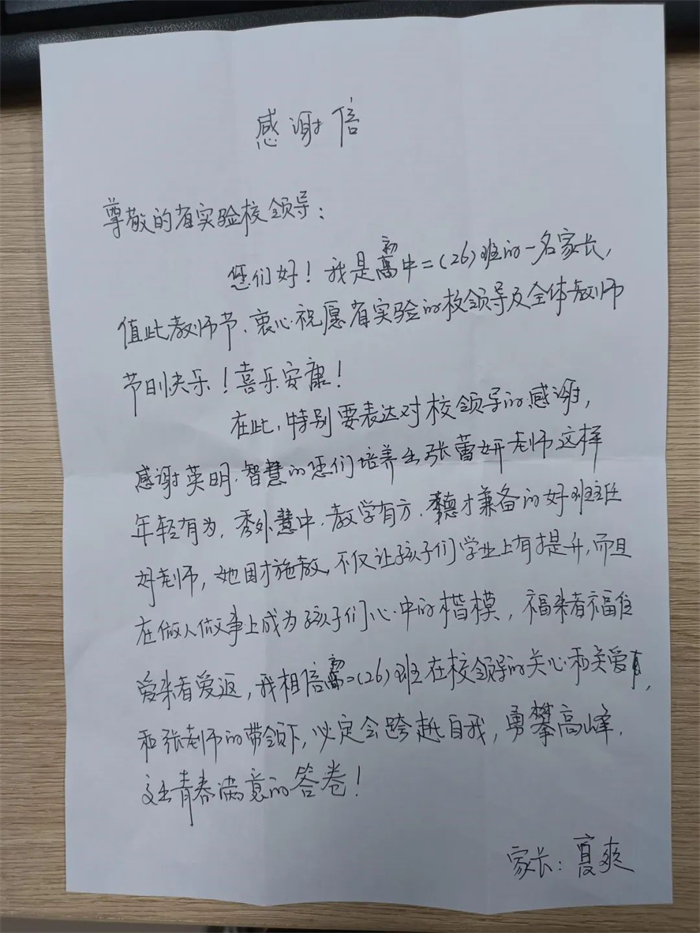 感谢信
尊敬的省实验校领导：
您们好！我是初中二(26)班的一名家长，
值此教师节、衷心祝愿省实验的校领导及全体教师
节日快乐！喜乐安康！
在此，特别要表达对校领导的感谢，
感谢英明、智慧的您们培养出张蕾妍老师这样
年轻有为、秀外慧中、教学有方、德才兼备的好班主任
好老师，她因才施教，不仅让孩子们学业上有提升，而且
在做人做事上成为孩子们心中的楷模，福来者福往
爱来者爱返，我相信初二(26)班在校领导的关心和关爱下，
和张老师的带领下，必定会跨越自我，勇攀高峰，
交出青春满意的答卷！
家长：夏爽